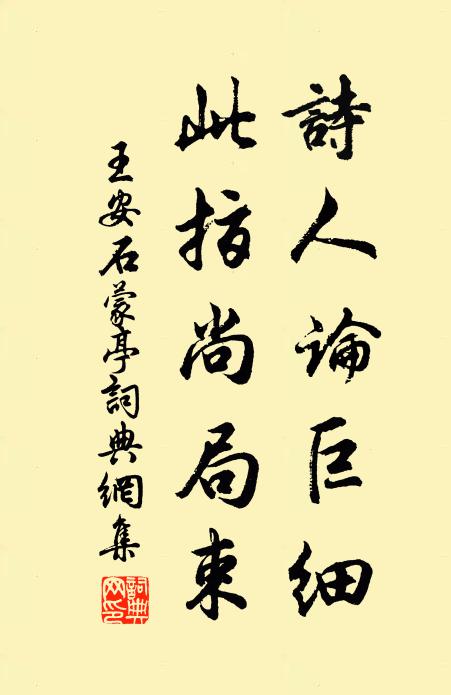 詩人論巨細
此指尚局束
王安石蒙亭詞典網集
詞典網印